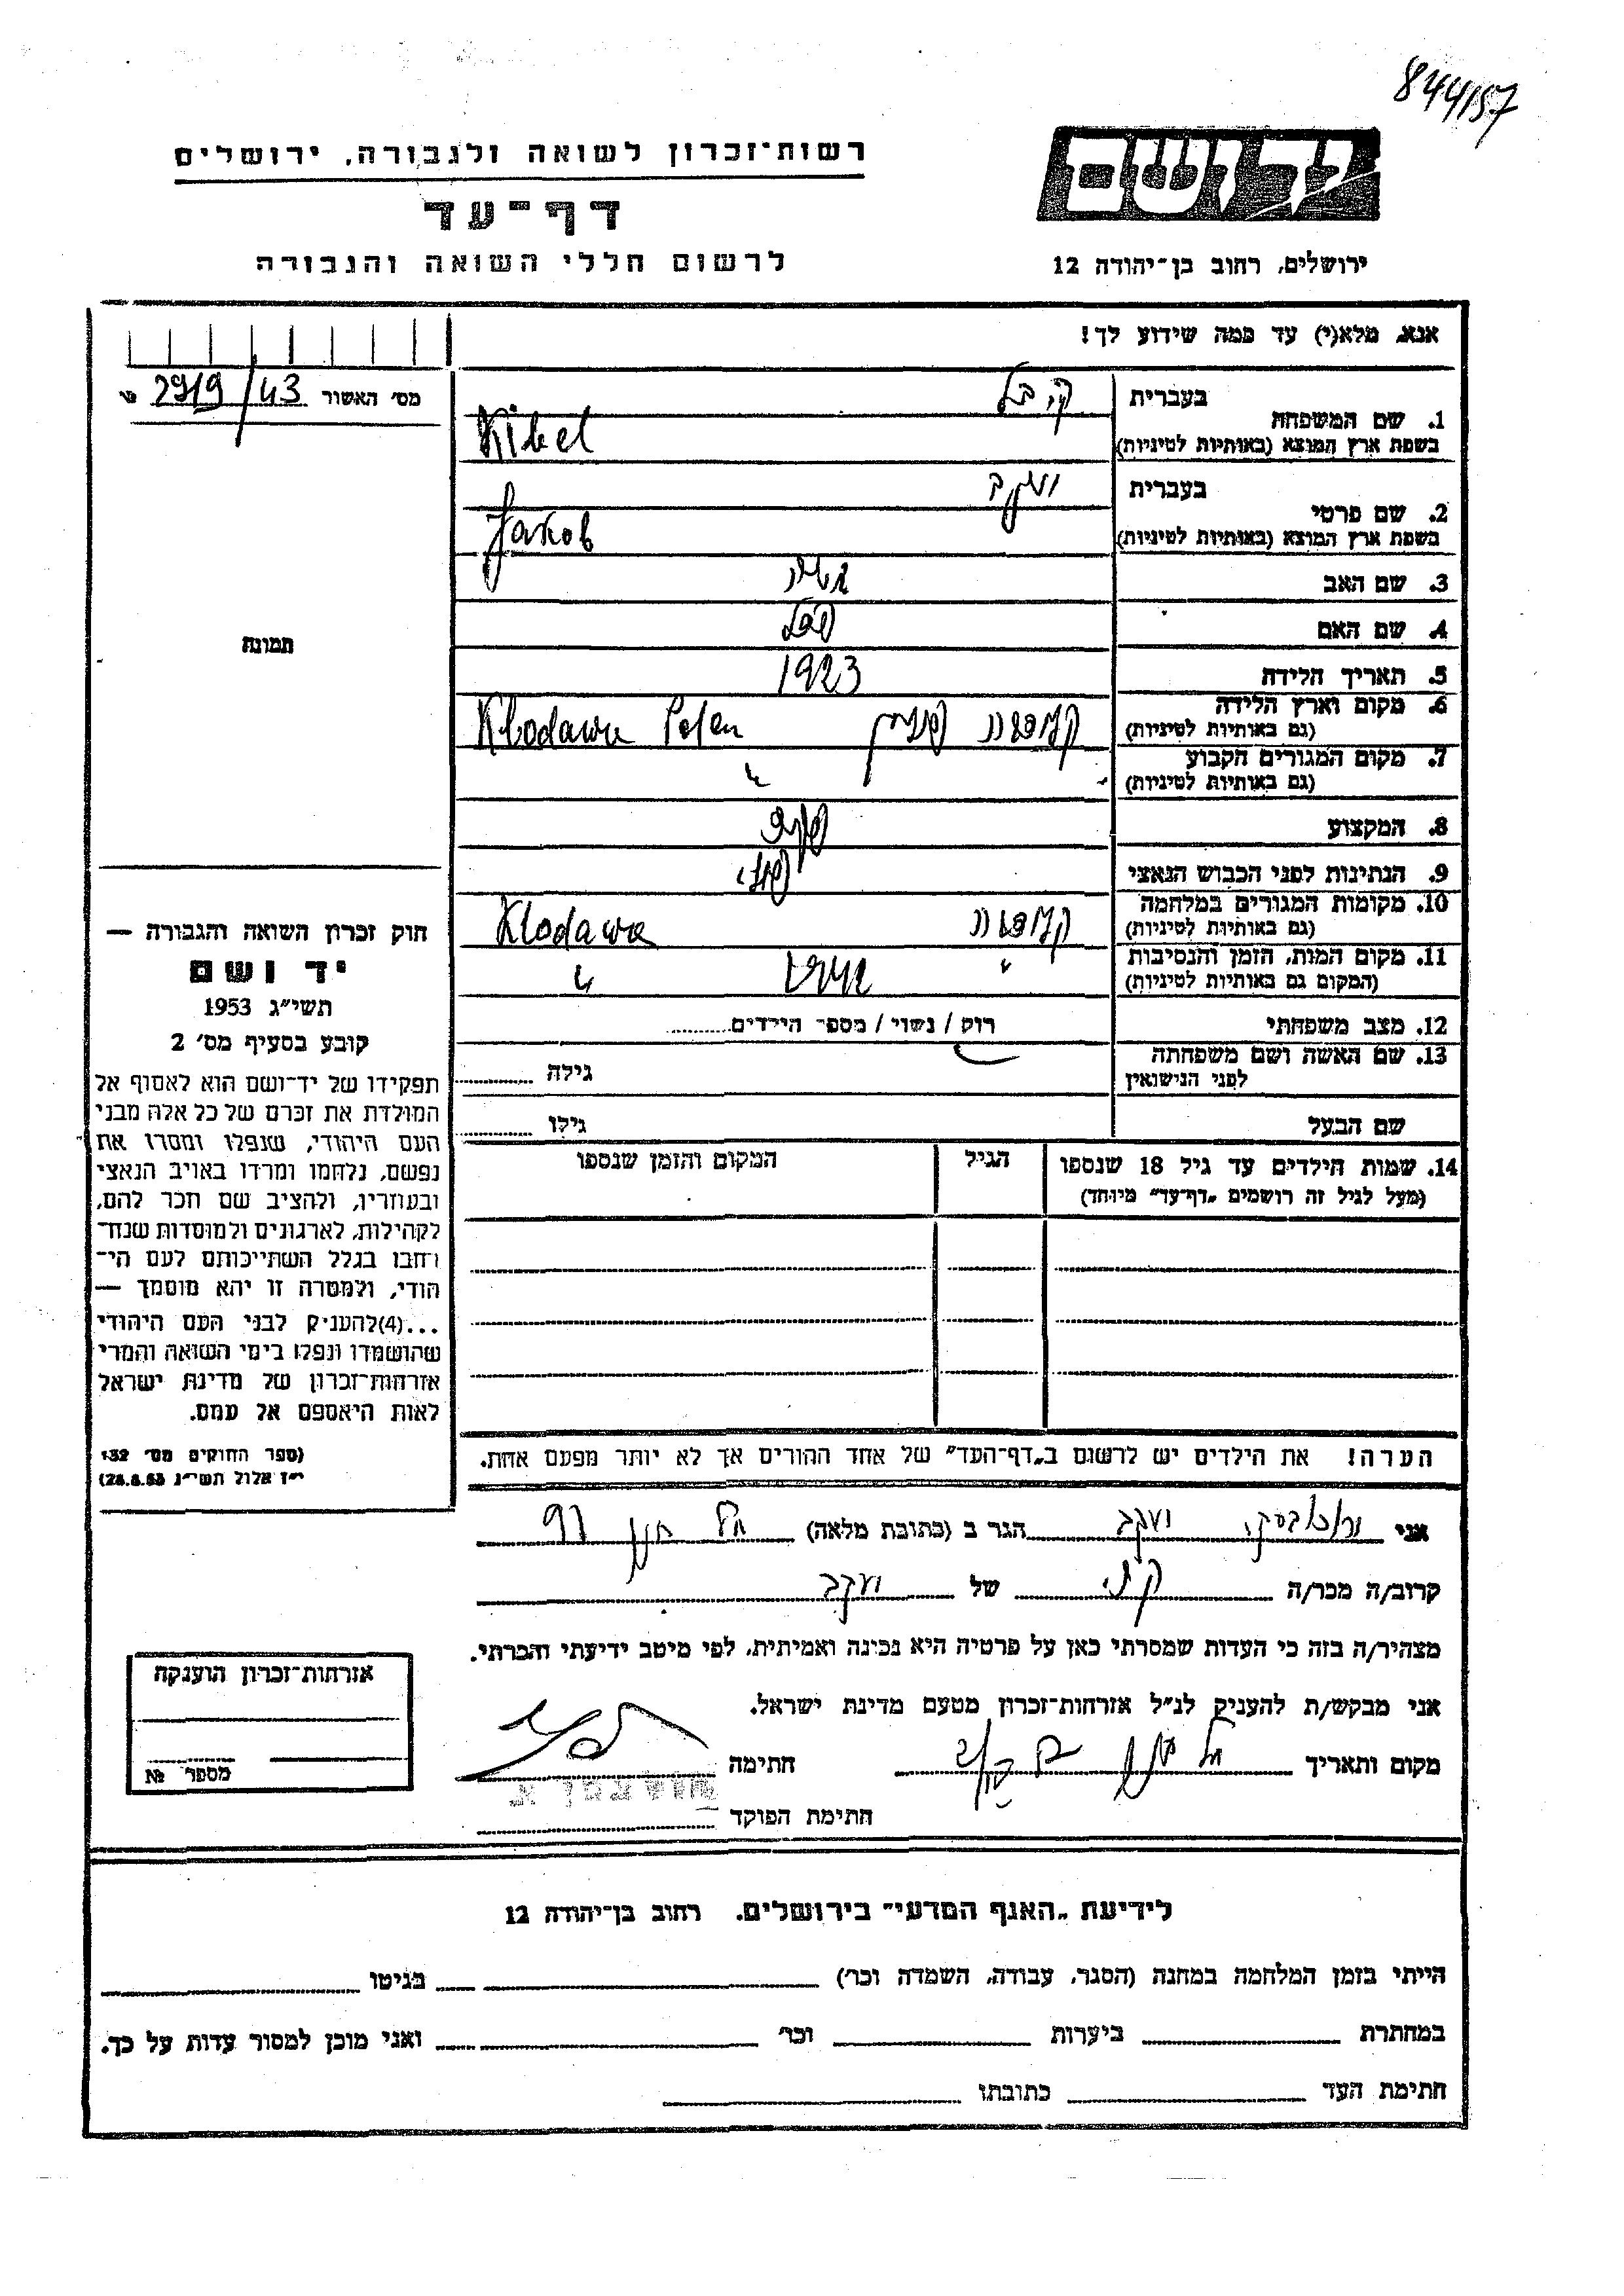 844/57
רשות־זכרון לשואה ולגבורה, ירושלים
דף־עד
לרשום חללי השואה והגבורה
יד ושם
ירושלים, רחוב בן־יהודה 12
אנא, מלא(י) עד כמה שידוע לך!
מס׳ האשור 2919/43
1. שם המשפחה בעברית קיבל
בשפת ארץ המוצא (באותיות לטיניות) Kibel
2. שם פרטי בעברית יעקב
בשפת ארץ המוצא (באותיות לטיניות) Jakob
3. שם האב
4. שם האם
5. תאריך הלידה 1923
6. מקום וארץ הלידה (גם באותיות לטיניות) Klodawa Polen
7. מקום המגורים הקבוע (גם באותיות לטיניות) "
8. המקצוע
9. הנתינות לפני הכבוש הנאצי פולני
10. מקומות המגורים במלחמה (גם באותיות לטיניות) Klodawa
11. מקום המות, הזמן והנסיבות (המקום גם באותיות לטיניות) "
12. מצב משפחתי רווק / נשוי / מספר הילדים
13. שם האשה ושם משפחתה לפני הנישואין גילה
שם הבעל גילו
14. שמות הילדים עד גיל 18 שנספו הגיל המקום והזמן שנספו
(מעל לגיל זה רושמים „דף־עד״ מיוחד)
הערה! את הילדים יש לרשום ב„דף־העד״ של אחד ההורים אך לא יותר מפעם אחת.
תמונה
חוק זכרון השואה והגבורה —
יד ושם
תשי״ג 1953
קובע בסעיף מס׳ 2
תפקידו של יד־ושם הוא לאסוף אל
המולדת את זכרם של כל אלה מבני
העם היהודי, שנפלו ומסרו את
נפשם, נלחמו ומרדו באויב הנאצי
ובעוזריו, ולהציב שם וזכר להם,
לקהילות, לארגונים ולמוסדות שנח־
רחבו בגלל השתייכותם לעם הי־
הודי, ולמטרה זו יהא מוסמך —
...(4)להעניק לבני העם היהודי
שהושמדו ונפלו בימי השואה והמרי
אזרחות־זכרון של מדינת ישראל
לאות היאספם אל עמם.
(ספר החוקים מס׳ 132
י״ז אלול תשי״ג 28.8.53)
אני יעקב הגר ב (כתובת מלאה)
קרוב/ה מכר/ה של יעקב
מצהיר/ה בזה כי העדות שמסרתי כאן על פרטיה היא נכונה ואמיתית, לפי מיטב ידיעתי והכרתי.
אני מבקש/ת להעניק לנ״ל אזרחות־זכרון מטעם מדינת ישראל.
מקום ותאריך חתימה
חתימת הפוקד
אזרחות־זכרון הוענקה
מספר №
לידיעת „האגף המדעי״ בירושלים, רחוב בן־יהודה 12
הייתי בזמן המלחמה במחנה (הסגר, עבודה, השמדה וכר׳) בגיטו
במחתרת ביערות וכר׳ ואני מוכן למסור עדות על כך.
חתימת העד כתובתו